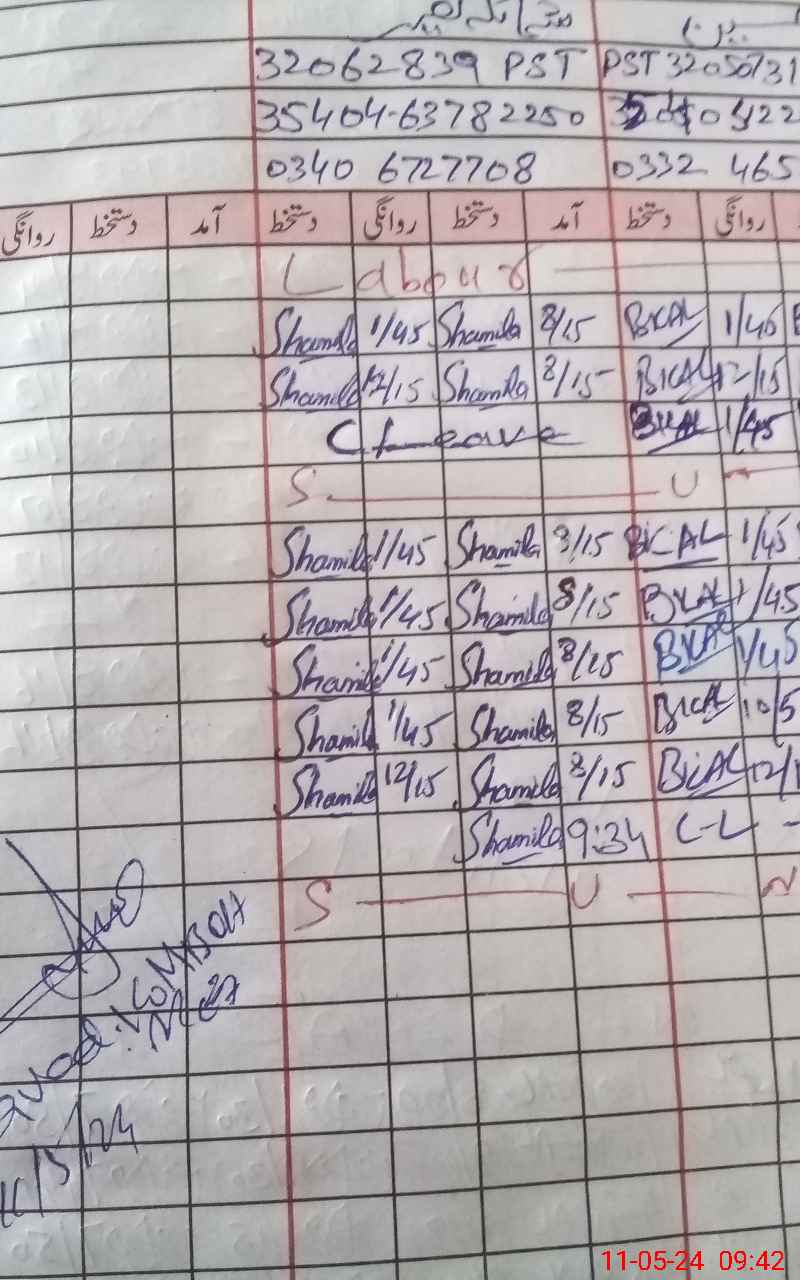 32062839 PST PST 32050731
35404-63782250
0340 6727708 0332 465
روانگی دستخط آمد دستخط روانگی دستخط آمد دستخط روانگی
Labour
Shamila 1/45 Shamila 8/15 BILAL 1/45
Shamila 12/15 Shamila 8/15 BILAL 12/15
C Leave BILAL 1/45
S U
Shamila 1/45 Shamila 8/15 BILAL 1/45
Shamila 1/45 Shamila 8/15 BILAL 1/45
Shamila 1/45 Shamila 8/15 BILAL 1/45
Shamila 1/45 Shamila 8/15 BILAL 10/5
Shamila 12/15 Shamila 8/15 BILAL 12/1
Shamila 9:34 C-L -
S U N
KOMBOH
MEA
11/5/24
11-05-24 09:42